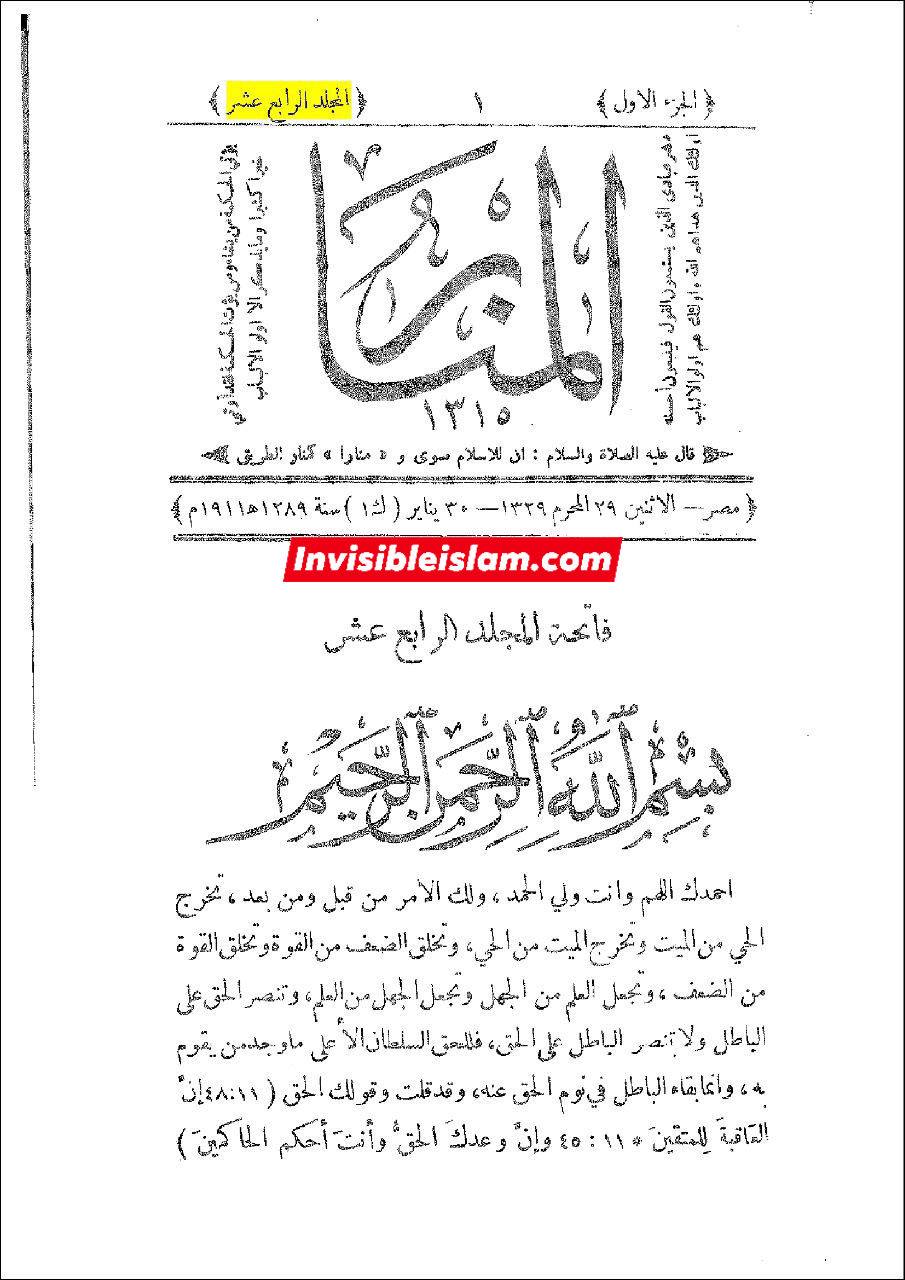 ﴿ الجزء الاول ﴾ ١ ﴿ المجلد الرابع عشر ﴾
فبشر عبادي الذين يستمعون القول فيتبعون أحسنه
اولئك الذين هداهم الله واولئك هم اولو الالباب
المنار
١٣١٥
يؤتي الحكمة من يشاء ومن يؤت الحكمة فقد أوتي
خيرا كثيرا وما يذكر الا اولو الالباب
﴿ قال عليه الصلاة والسلام : ان للاسلام صوى و « منارا » كمنار الطريق ﴾
﴿ مصر – الاثنين ٢٩ المحرم ١٣٢٩ – ٣٠ يناير ( ك١ ) سنة ١٢٨٩ﻫ ١٩١١م ﴾
Invisibleislam.com
فاتحة المجلد الرابع عشر
بِسْمِ اللَّهِ الرَّحْمَنِ الرَّحِيمِ
احمدك اللهم وانت ولي الحمد ، ولك الأمر من قبل ومن بعد ، تخرج
الحي من الميت وتخرج الميت من الحي ، وتخلق الضعف من القوة وتخلق القوة
من الضعف ، وتجعل العلم من الجهل وتجعل الجهل من العلم ، وتنصر الحق على
الباطل ولا تنصر الباطل على الحق ، فللحق السلطان الأعلى ما وجد من يقوم
به ، وانما بقاء الباطل في نوم الحق عنه ، وقد قلت وقولك الحق ( ٤٨:١١ إنَّ
العَاقبةَ لِلمتقينَ * ١١ : ٤٥ وإنَّ وعدكَ الحقُّ وأنتَ أحكم الحاكمينَ )